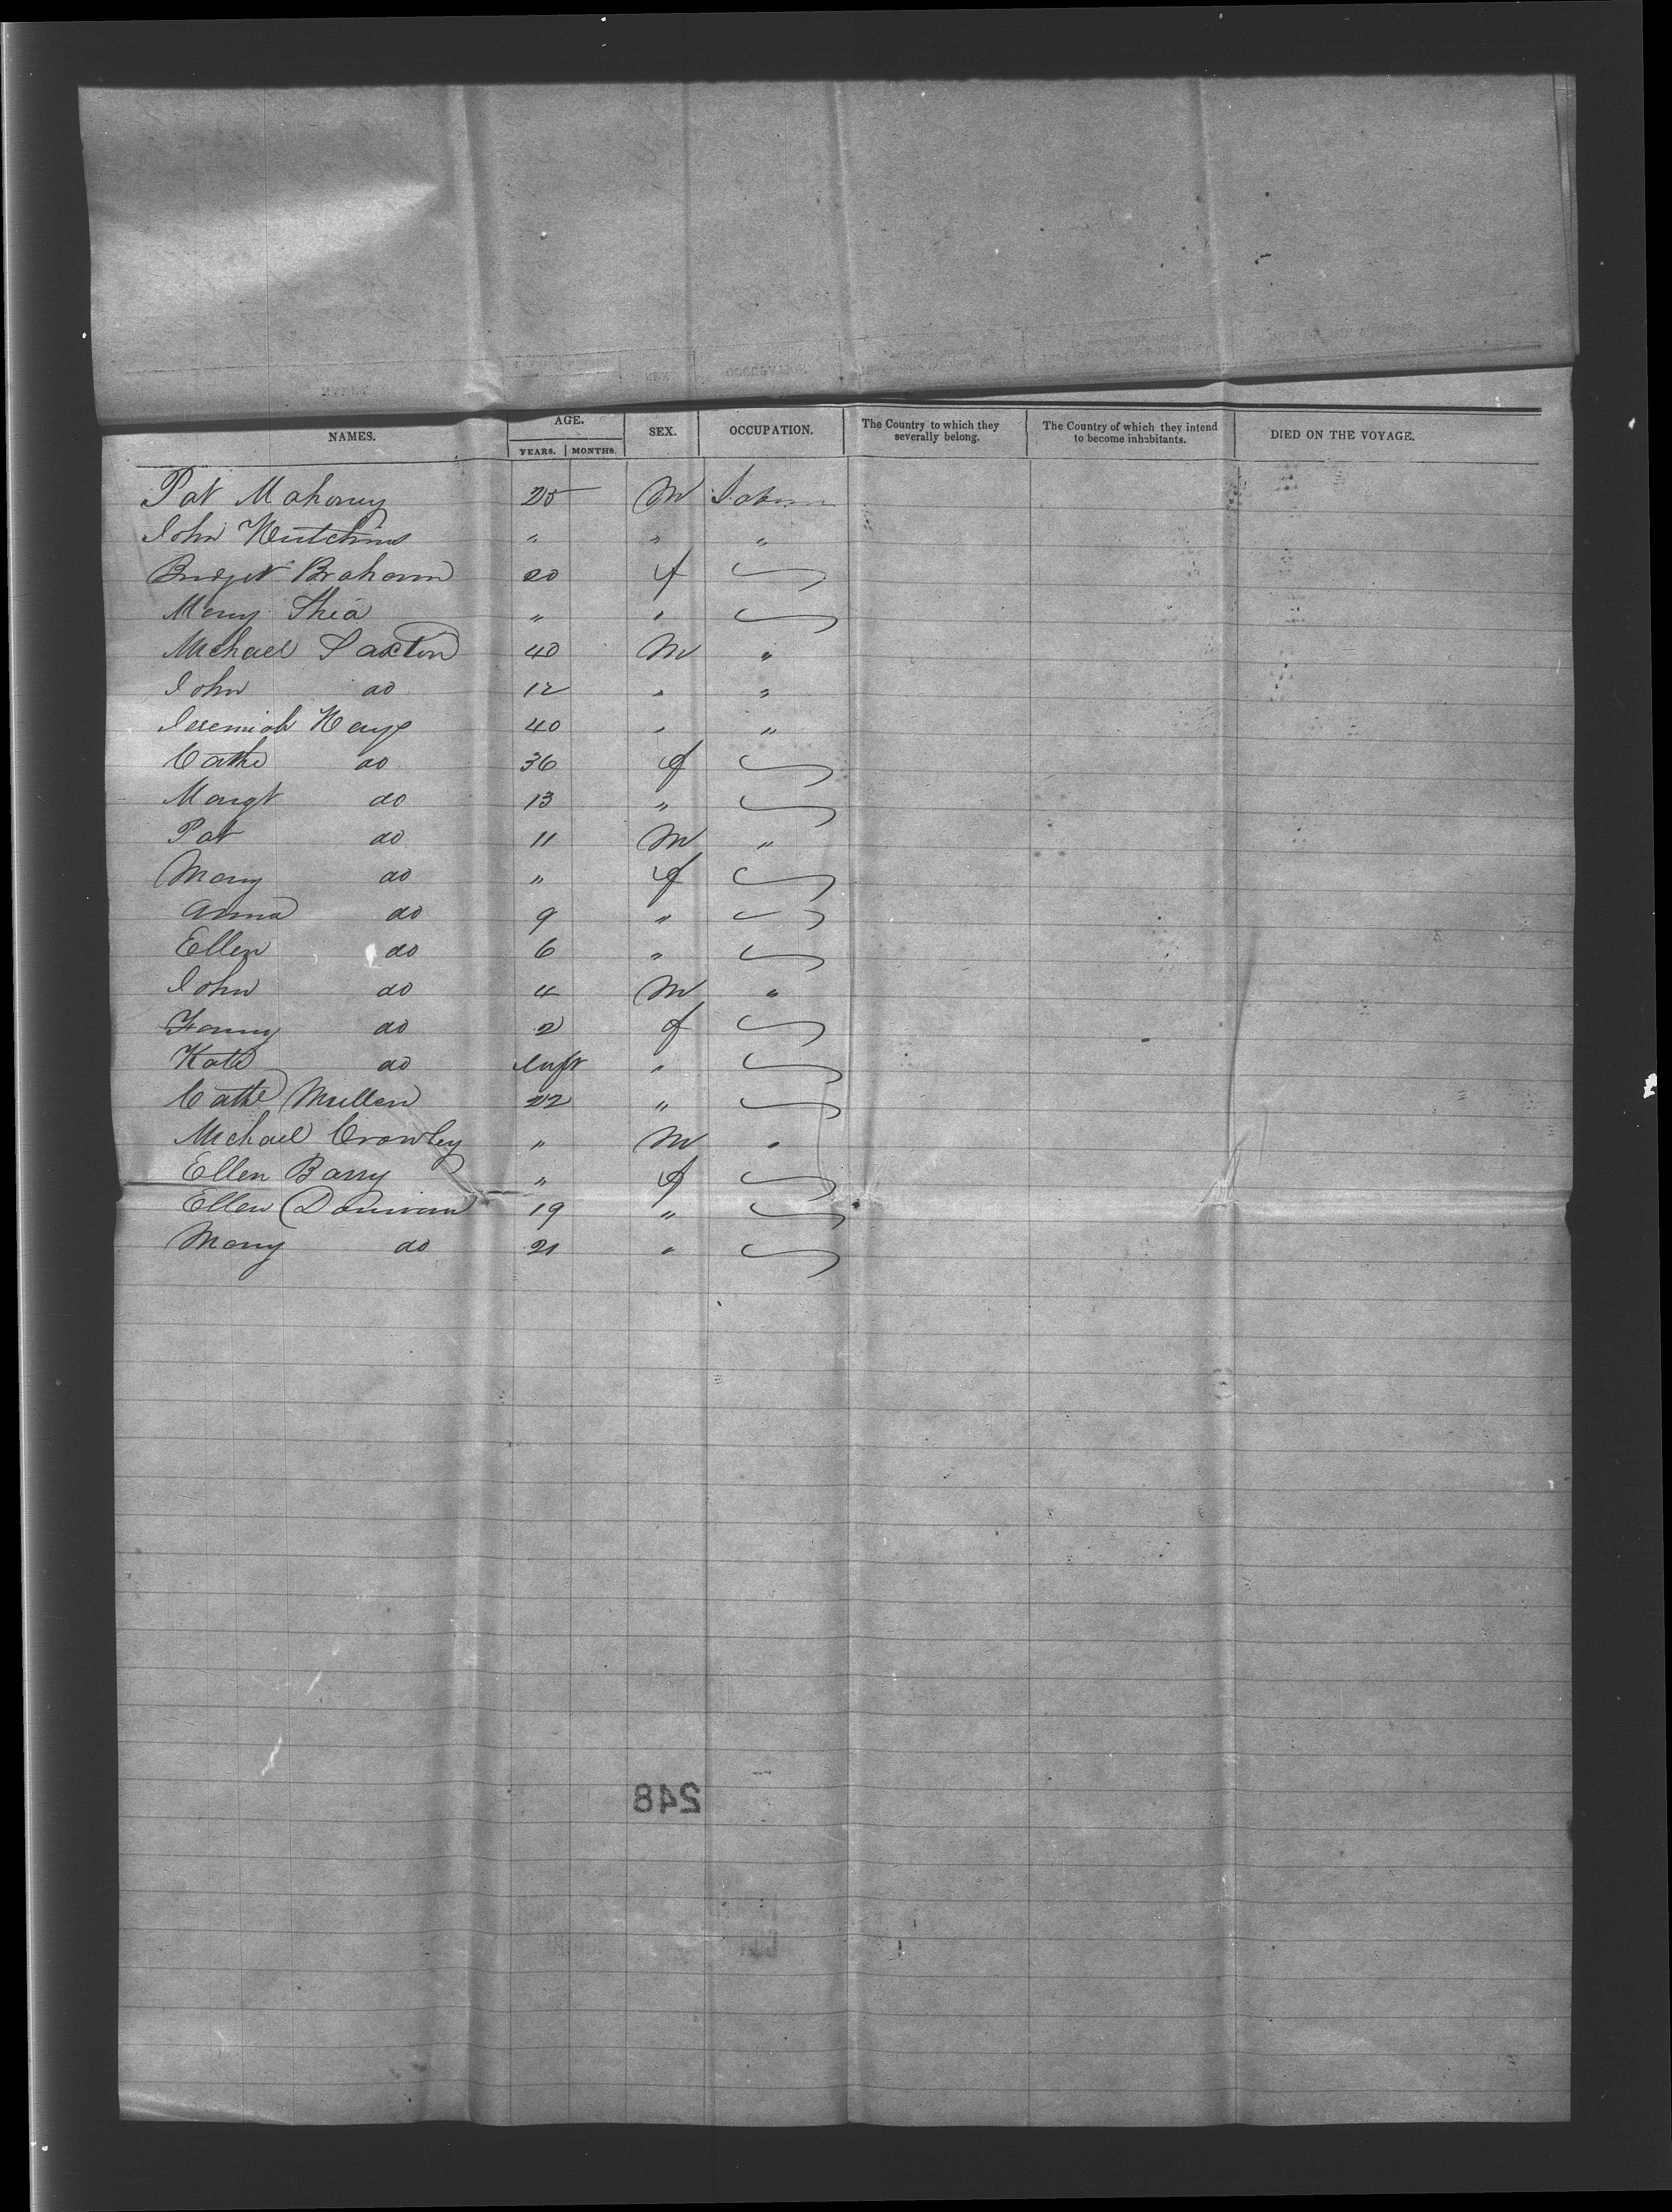 NAMES. AGE. YEARS. MONTHS. SEX. OCCUPATION. The Country to which they severally belong. The Country of which they intend to become inhabitants. DIED ON THE VOYAGE.
Pat Mahoney 25 M Labour
John Hutchins " " "
Bridget 20 f
Mary Shea " "
Michael Saxton 40 M "
John do 12 " "
Jeremiah Hays 40 " "
Cathe do 36 f
Margt do 13 "
Pat do 11 M "
Mary do " f
Anna do 9 "
Ellen do 6 "
John do 4 M "
Fanny do 2 f
Kate do Inft "
Cathe Mullen 22 "
Michael Crowley " M "
Ellen Barry " f
Ellen Donivan 19 "
Mary do 21 "
248